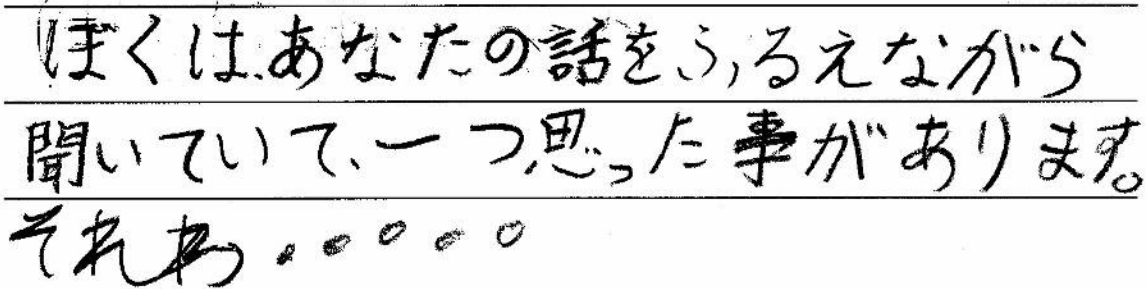 ぼくは、あなたの話をふるえながら
聞いていて、一つ思った事があります。
それわ.....